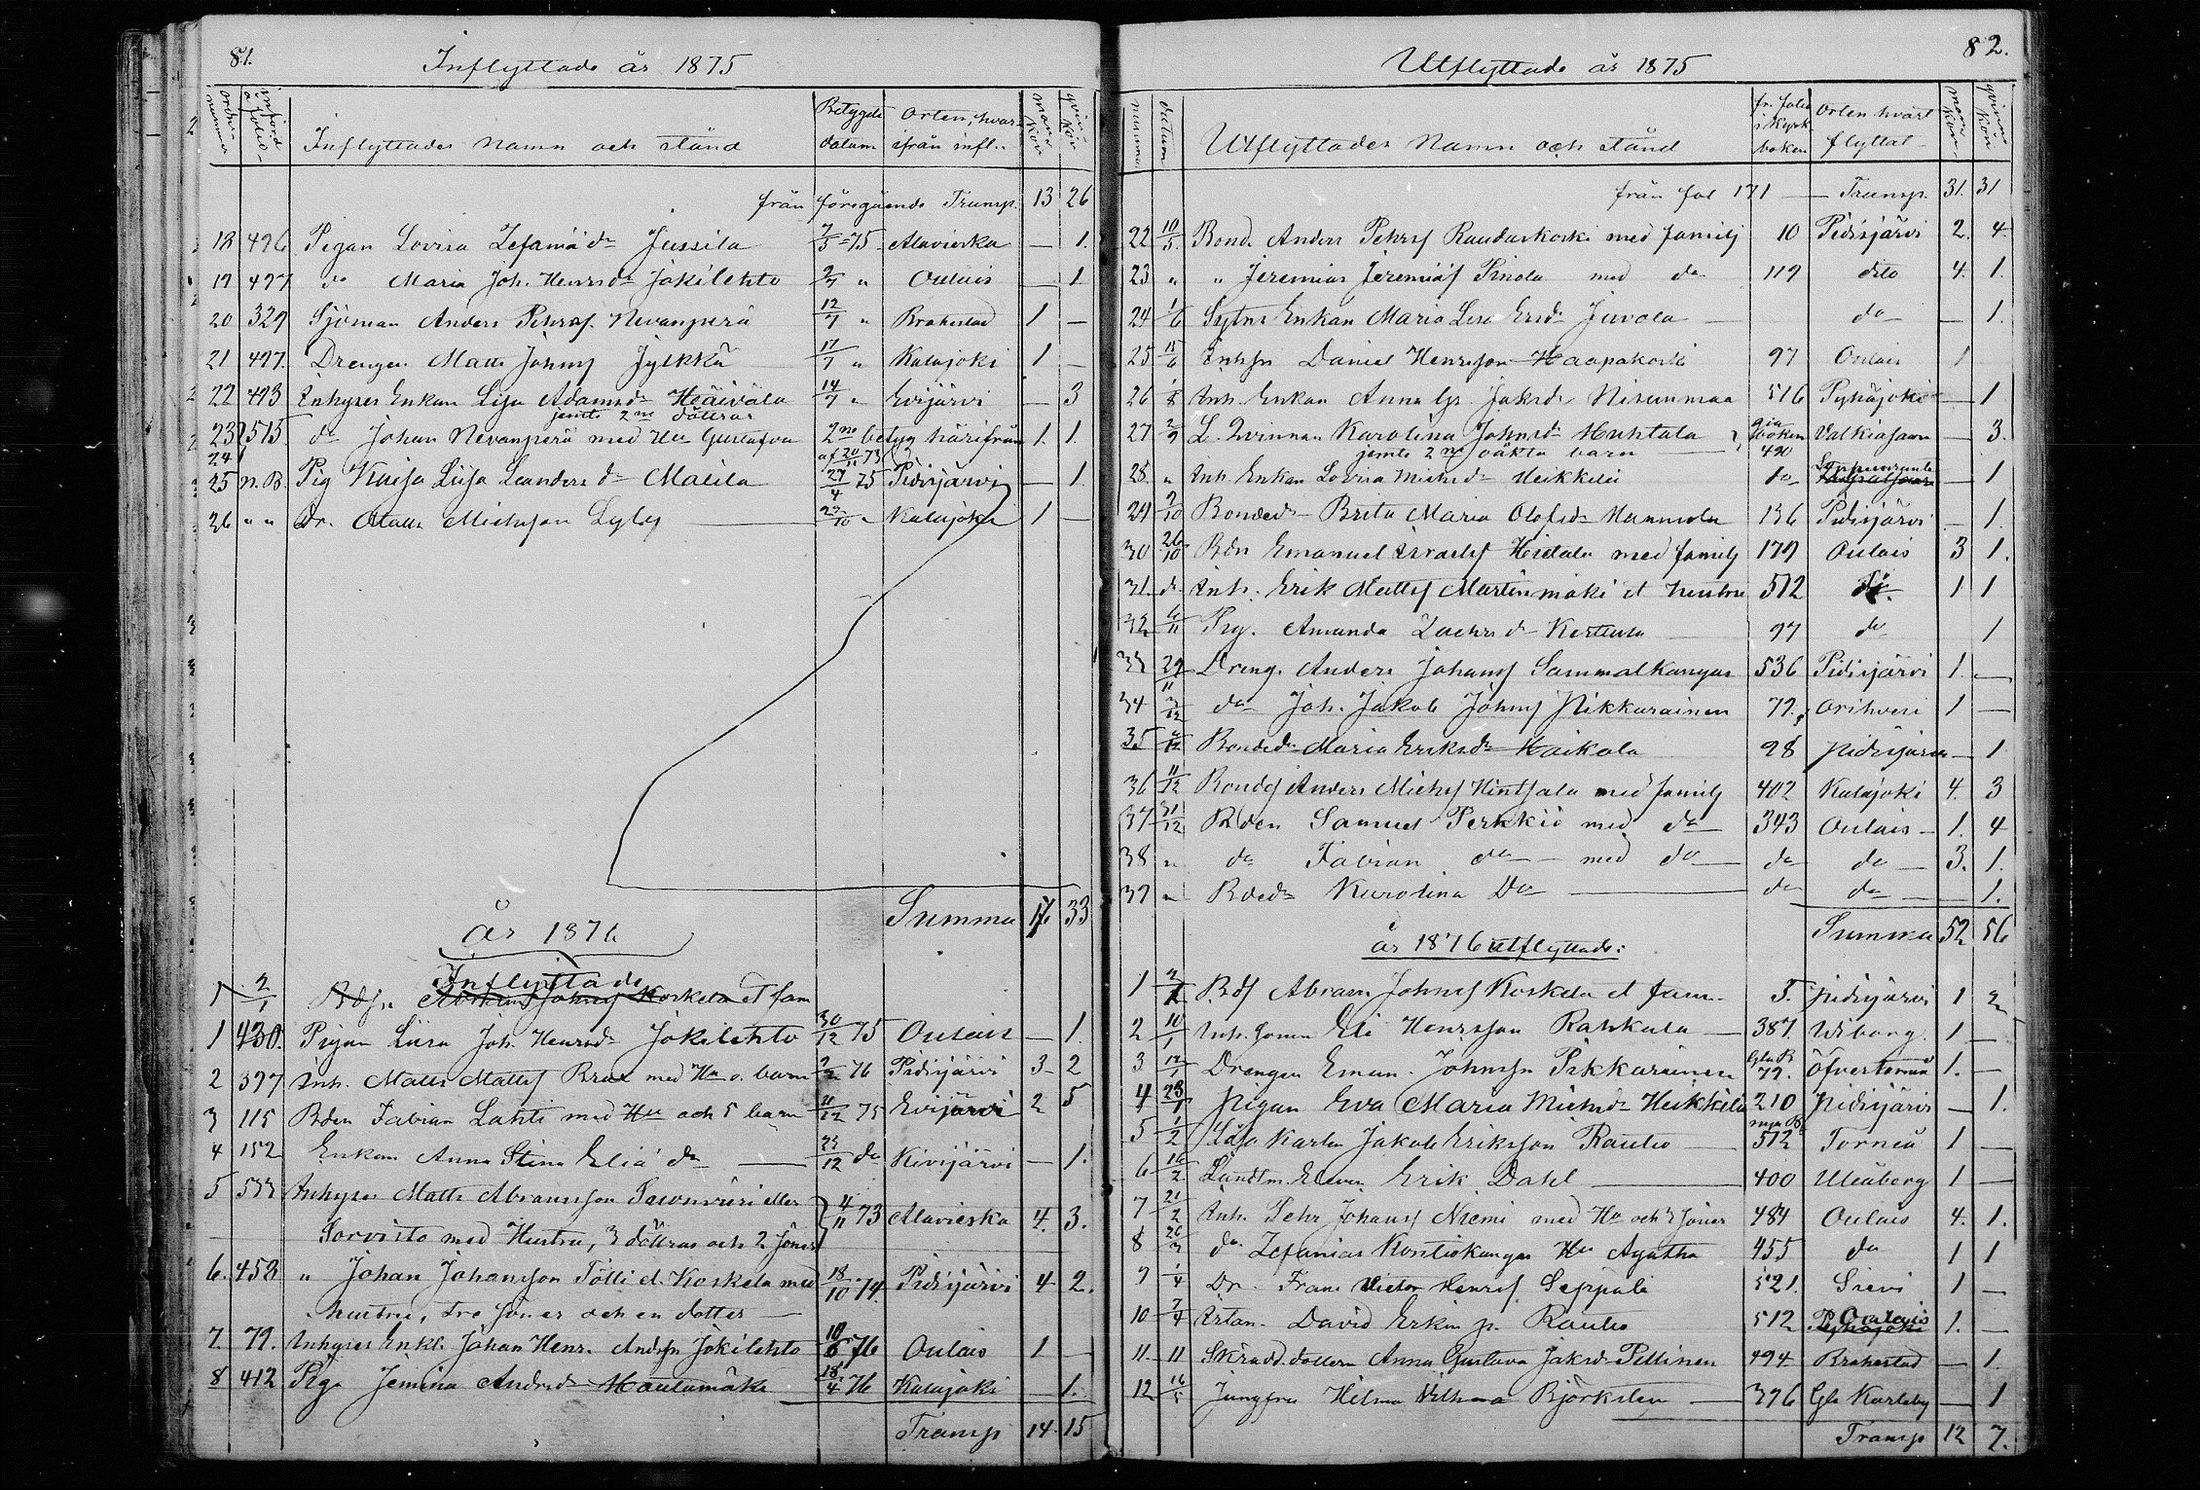 81.
Inflyttade år 1875
Inflyttades namn och stånd
Betygets datum
Orten, hvarifrån infl..
från föregående Transp. 13 26
18 496 Pigan Lovisa Zefaniä dr Jussila 7/5 -75 Alavieska — 1.
19 497 do Maria Joh. Henrs dr Jokilehto 2/7 " Oulais — 1.
20 329 Sjöman Anders Pehrsf. Nevanperä 12/7 " Brahestad 1 —
21 497. Drengen Matts Johnsf Jylkkä 17/7 " Kalajoki 1 —
22 493 Inhyses Enkan Lisa Adamsdr 14/7 " Evijärvi — 3
jemte 2ne döttrar
23 515 do Johan Nevanperä med Hu Gustafva 2ne betyg härifrån 1. 1.
24 af 20/11 73
25 n. B Pig Kaisa Liisa Leanders dr Malila 27/4 75 Pidisjärvi — 1.
26 " " Dr. Matts Michelsson Lyly 23/10 " Kalajoki 1 —
Summa 17. 33
år 1876
Inflyttade
1 2/1 Bdsn Abrams Johnsf Koskela et fam
1 430. Pigan Liisa Joh. Henrsdr Jokilehto 30/12 75 Oulais — 1.
2 397 Inh. Matts Mattsf Brax med Hu o. barn 2/2 76 Pidisjärvi 3 2
3 115 Bden Fabian Lahti med Hu och 5 barn 11/12 75 Evijärvi 2 5
4 152 Enkan Anna Stina Eliä dr — 23/12 do Kivijärvi — 1.
5 533 Inhyses Matts Abramsson Savonvieri eller 4/11 73 Alavieska 4. 3.
Sorvisto med Hustru, 3 döttrar och 2 söner
6. 458 " Johan Johansson Tölli el. Koskela med 18/10 74. Pidisjärvi 4 2.
hustru, tre söner och en dotter —
7. 79. Inhyses Enkl. Johan Henr. Andrsn Jokilehto 10/6 76 Oulais 1 —
8 412 Piga Jemina Andrsdr Hautamäki 18/4 76 Kalajoki — 1.
Transp 14. 15
82.
Utflyttade år 1875
nummer
datum
Utflyttades Namn och stånd
fr. folio i Kyrkboken
Orten hvart flyttat
från fol 171 — Transp. 31. 31
22 10/5. Bond. Anders Pehrsf Raudaskoski med familj 10 Pidisjärvi 2. 4.
23 " " Jeremias Jeremiäsf Pinola med do 119 dito 4. 1.
24 1/6 Sytns Enkan Maria Lisa Ersdr Juvola — do — 1.
25 15/6 Inhsn Daniel Henrsson Haapakoski 97 Oulais 1
26 1/8 Inh. Enkan Anna Gr. Jaksdr Nisunmaa 516 Pyhäjoki — 1
27 2/9 L. Qvinnan Karolina Johnsdr Huhtala gla boken Valkiasaari — 3.
jemte 2ne oäkta barn 490
28. " Inh. Enkan Lovisa Michsdr Heikkilä do — 1
29 2/10 Bondedr Brita Maria Olofsdr Hannula 136 Pidisjärvi — 1.
30 26/10 Bdn Emanuel Israelsf Hietala med familj 179 Oulais 3 1.
31. do Inh. Erik Mattsf Martinmäki et hustru 512 do. 1 1
32 6/11 Pig. Amanda Zachrs dr Kerttula 97 do 1
33 29/11 Dreng. Anders Johansf Sammalkangas 536 Pidisjärvi 1. —
34 3/12 do Joh. Jakob Johnsf Pikkarainen 72. Orihvesi 1 —
35 6/12 Bondedr Maria Eriksdr Haikola 98 Pidisjärvi — 1
36 11/12 Bondes Anders Michsf Hintsala med familj 402 Kalajoki 4. 3
37 31/12 Bden Samuel Perkkiö med do 343 Oulais — 1. 4
38 " do Fabian do — med do do do — 3. 1.
39 " Bdedr Karolina Do — do do — 1.
Summa 52 56
år 1876 utflyttade:
1 2/1 Bds Abram Johnsf Koskela et fam. 5. Pidisjärvi 1 2
2 10/1 Inh. Eli Henrsson Rahkala — 387. Wiborg. 1 —
3 12/1 Drengen Eman. Johnssn Pikkarainen Gla B 72. Öfvertorneå 1. —
4 28/1 Pigan Eva Maria Michsdr Heikkilä 210 Pidisjärvi — 1.
5 1/2 Jakob Eriksson Rautio nya B 512 Torneå 1 —
6 16/2 Landtm. Eleven Erik Dahl — 400 Uleåborg 1 —
7 21/2 Inh. Pehr Johansf Niemi med Hu och 3 söner 484 Oulais 4. 1.
8 26/3 do Zefanias Kontiokangas Hu Agatha 455 do 1 1
9 1/4 Dr. Frans Victor Henrsf Seppälä 521. Sievi 1 —
10 7/4 David Erkin p. Rautio 512 Oulais Pyhäjoki 1. —
11. 11 Skrädd. dottern Anna Gustava Jaksdr Pellinen 494 Brahestad — 1.
12 16/5 Jungfru Hilma Vilhma Björklund — 396 Gla Karleby — 1
Transp 12 7.